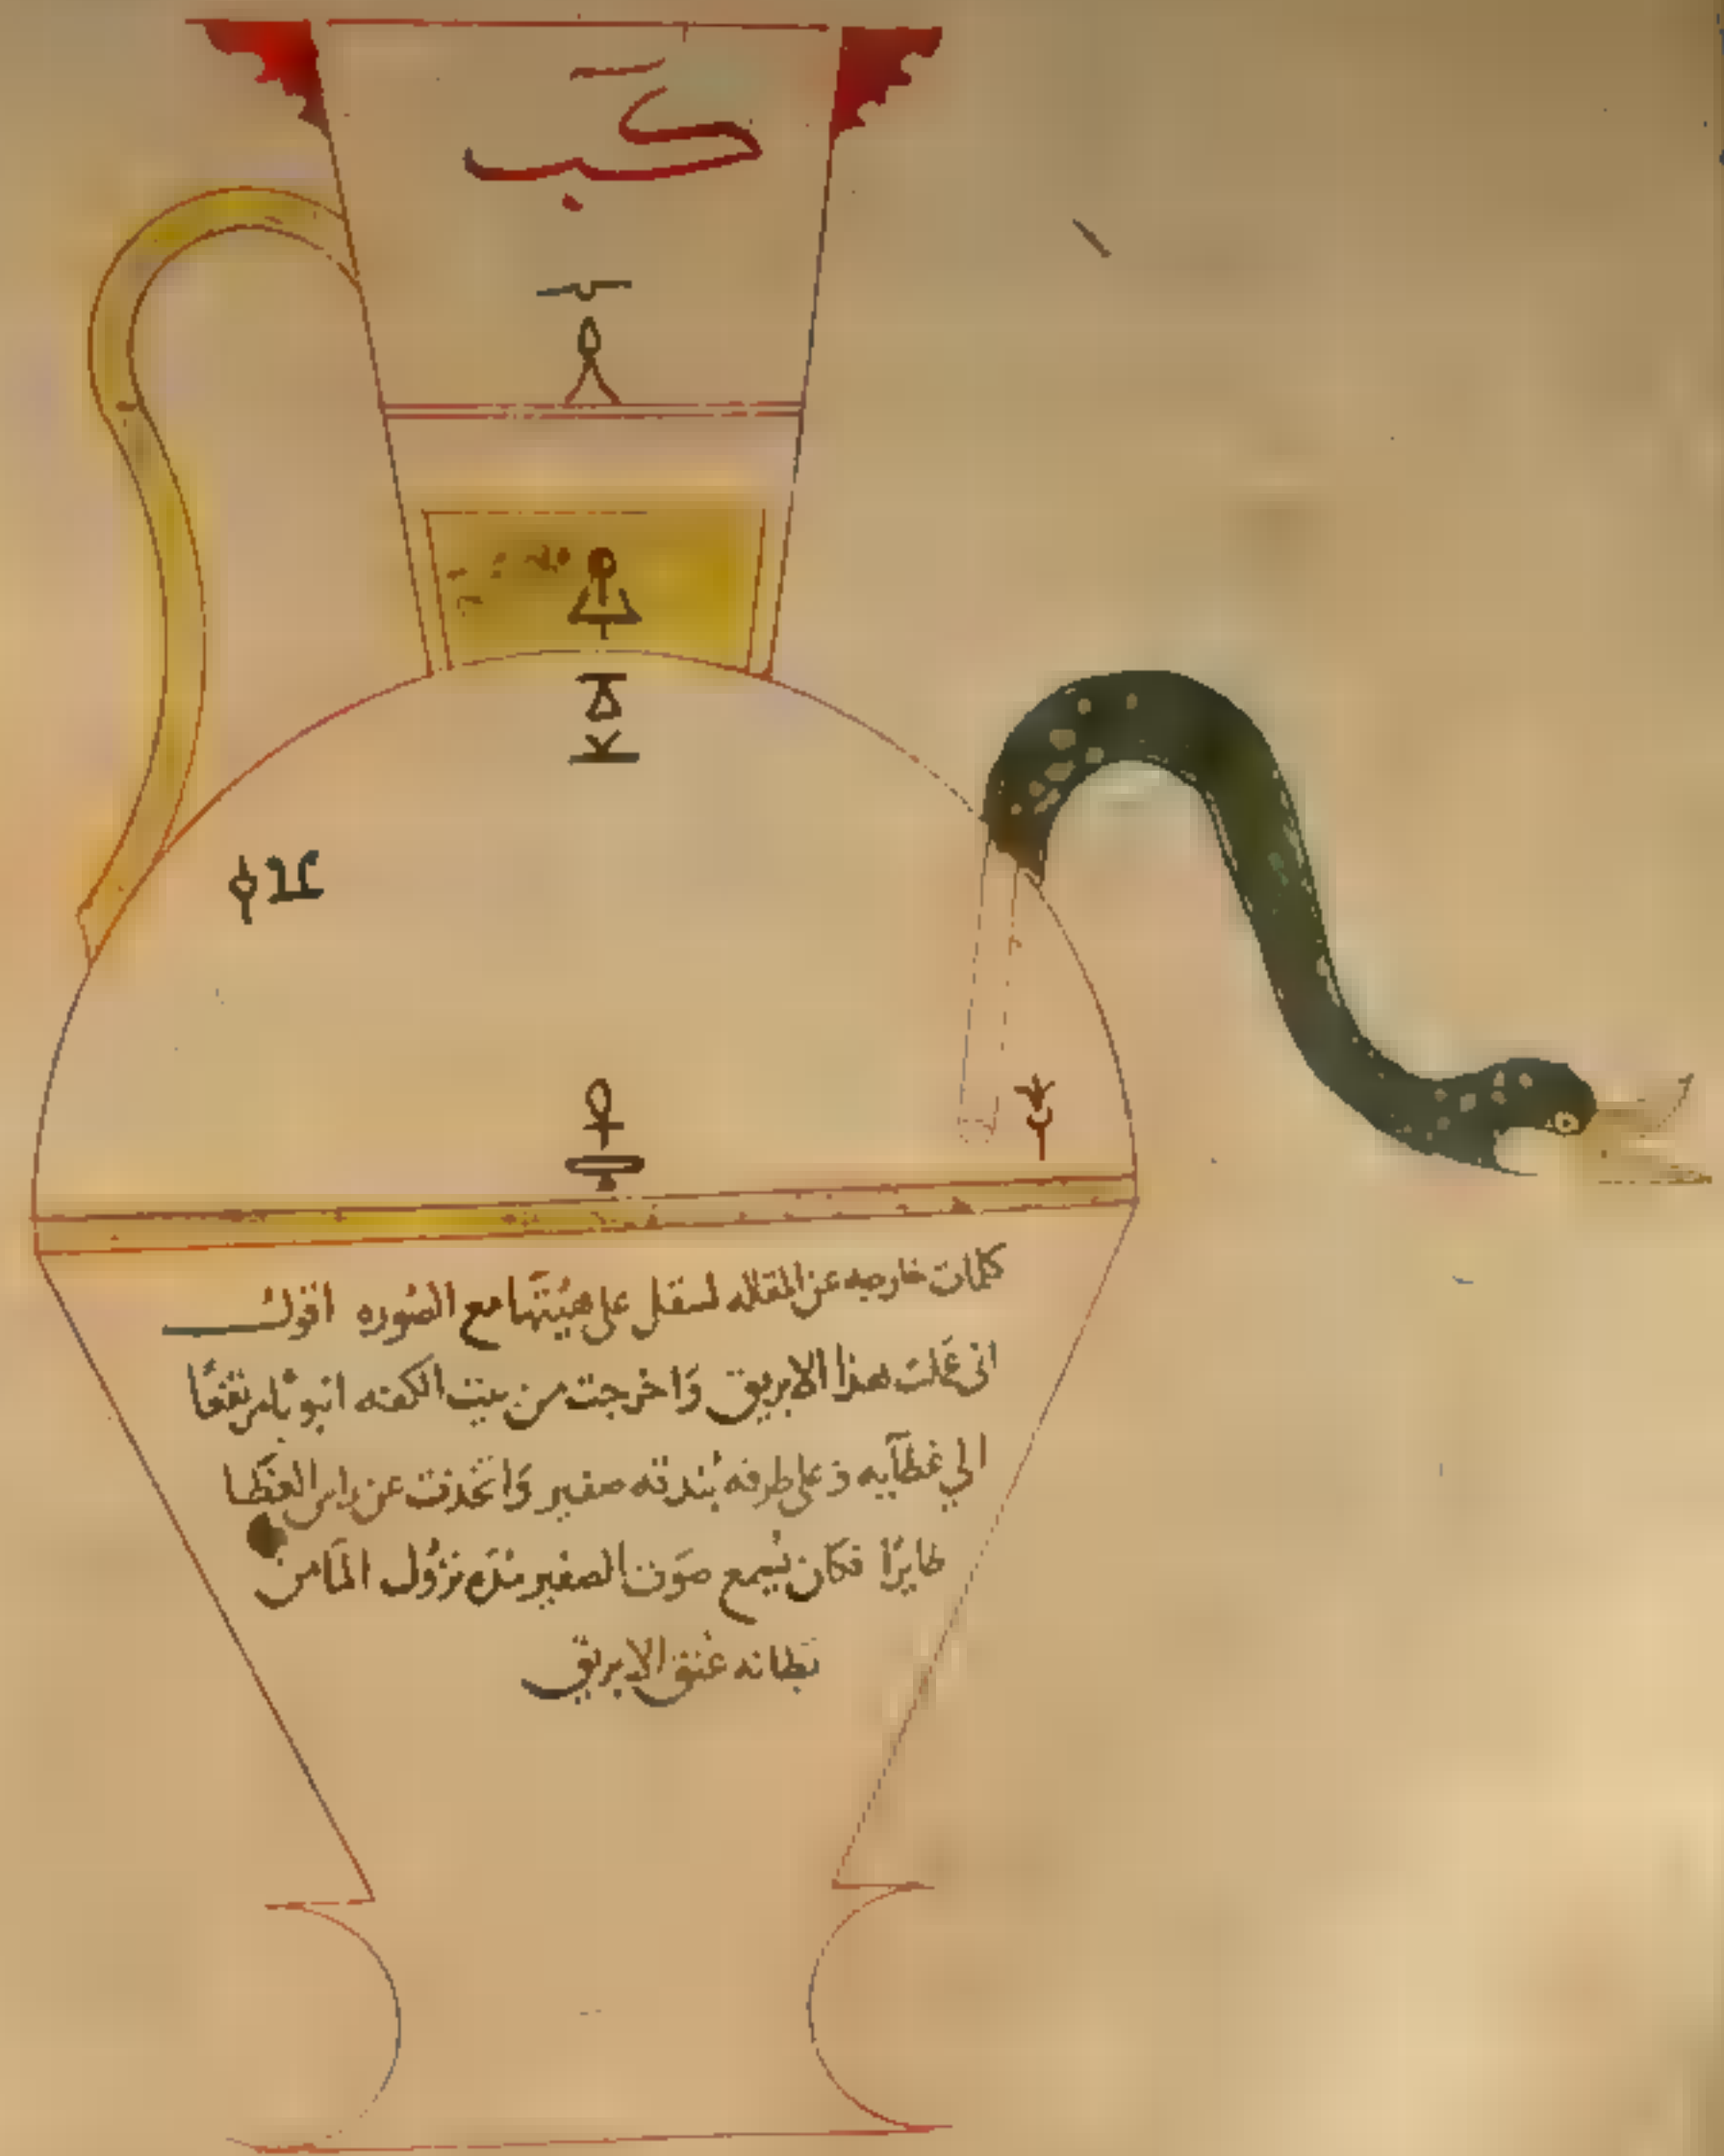 كب
كلمات خارجه عن المقاله لتنقل على هيئتها مع الصوره اقول
انى عملت هذا الابريق وَاخرجت من بيت الكفه انبوبا مرتفعًا
الي غطآيه وعلى طرفه بُندقه صفير وَاتخذت عن راس الغطَا
طايرًا فكان يُسمع صَوت الصفير مثل نزوُل المَا من
بطانه عنق الابريق